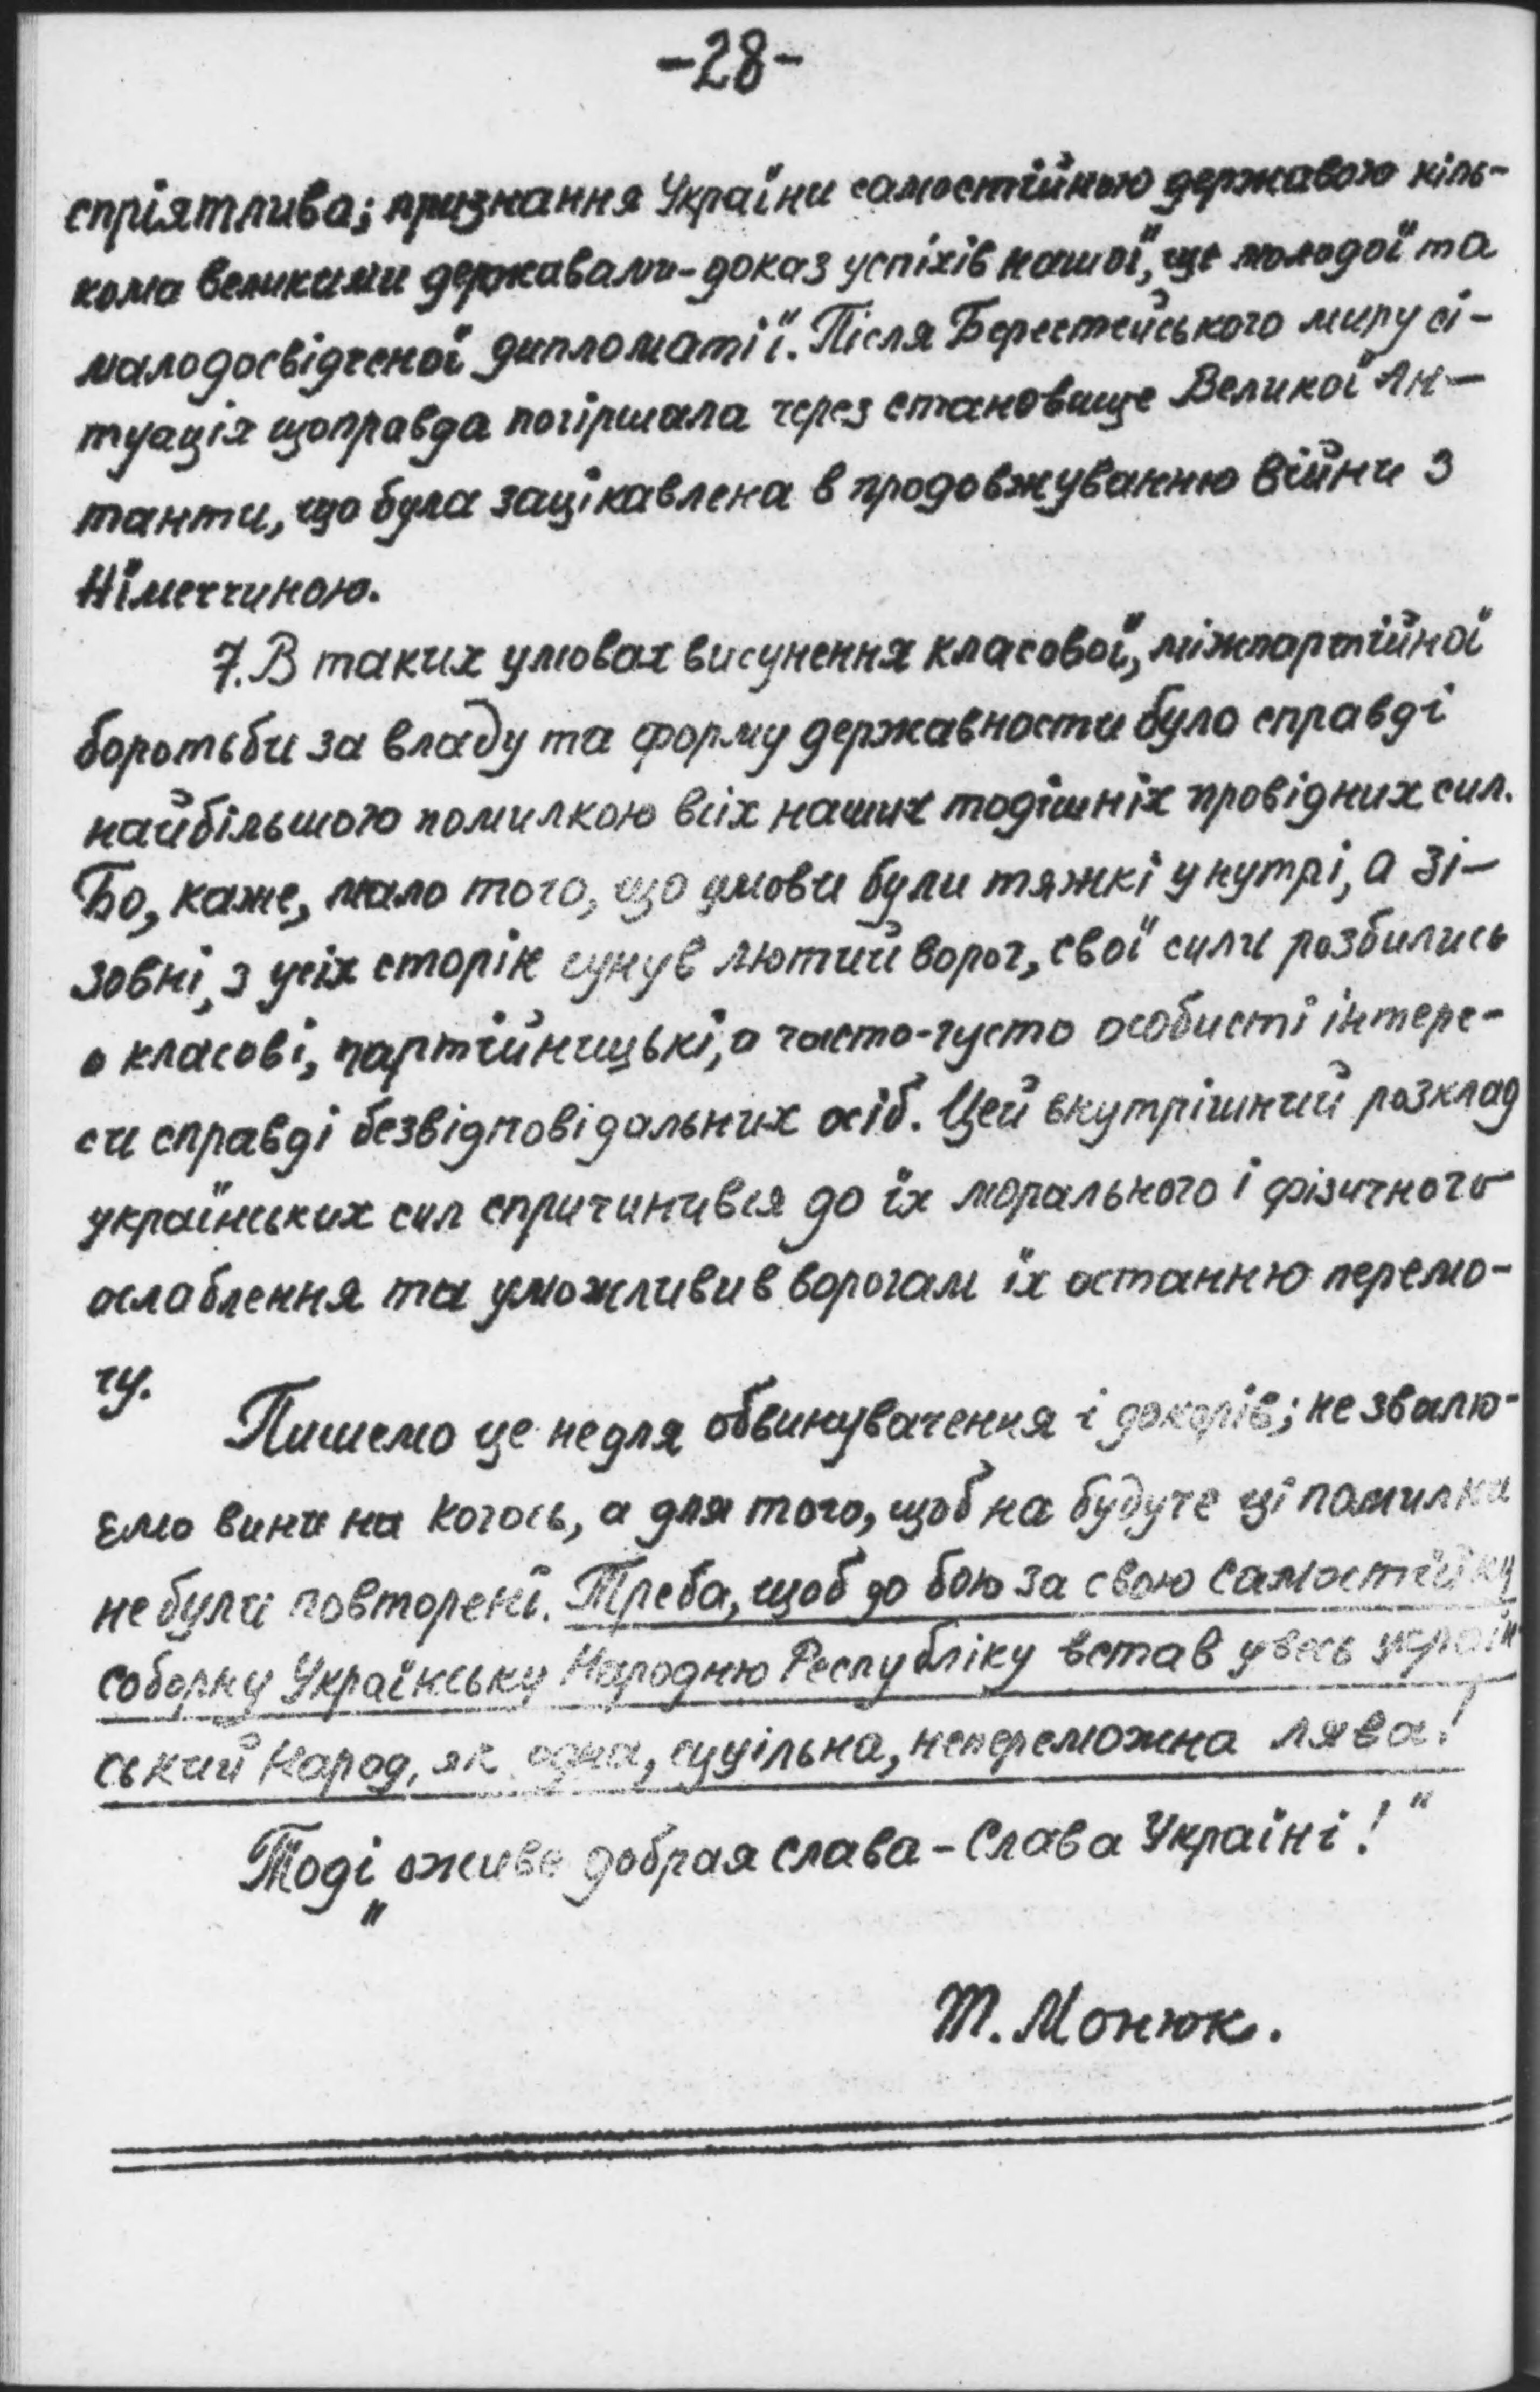 -28-
спріятлива; признання України самостійною державою кіль-
кома великими державами-доказ успіхів нашої, ще молодої та
малодосвідченої дипломатії. Після Берестейського миру сі-
туація щоправда погіршала через становище Великої Ан-
танти, що була зацікавлена в продовжуванню війни з
Німеччиною.
7. В таких умовах висунення класової, міжпартійної
боротьби за владу та форму державности було справді
найбільшою помилкою всіх наших тодішніх провідних сил.
Бо, каже, мало того, що умови були тяжкі унутрі, а зі-
зовні, з усіх сторін сунув лютий ворог, свої сили розбились
о класові, партійницькі, а часто-густо особисті інтере-
си справді безвідповідальних осіб. Цей внутрішний розклад
українських сил спричинився до їх морального і фізичного
ослаблення та уможливив ворогам їх останню перемо-
гу.
Пишемо це не для обвинувачення і докорів; не звалю-
ємо вини на когось, а для того, щоб на будуче ці помилки
не були повторені. Треба, щоб до бою за свою самостійну
соборну Українську Народню Республіку встав увесь україн
ський народ, як одна, суцільна, непереможна лява!
Тоді „оживе добрая слава - Слава Україні!"
Т. Монюк.